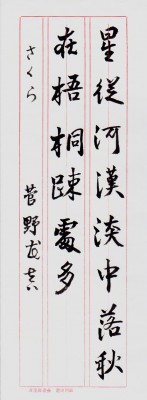 星從河漢淡中落秋
在梧桐疎處多
さくら
菅野